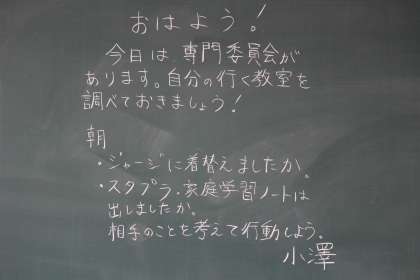 おはよう!
今日は専門委員会が
あります。自分の行く教室を
調べておきましょう!
朝
・ジャージに着替えましたか。
・スタプラ・家庭学習ノートは
出しましたか。
相手のことを考えて行動しよう。
小澤